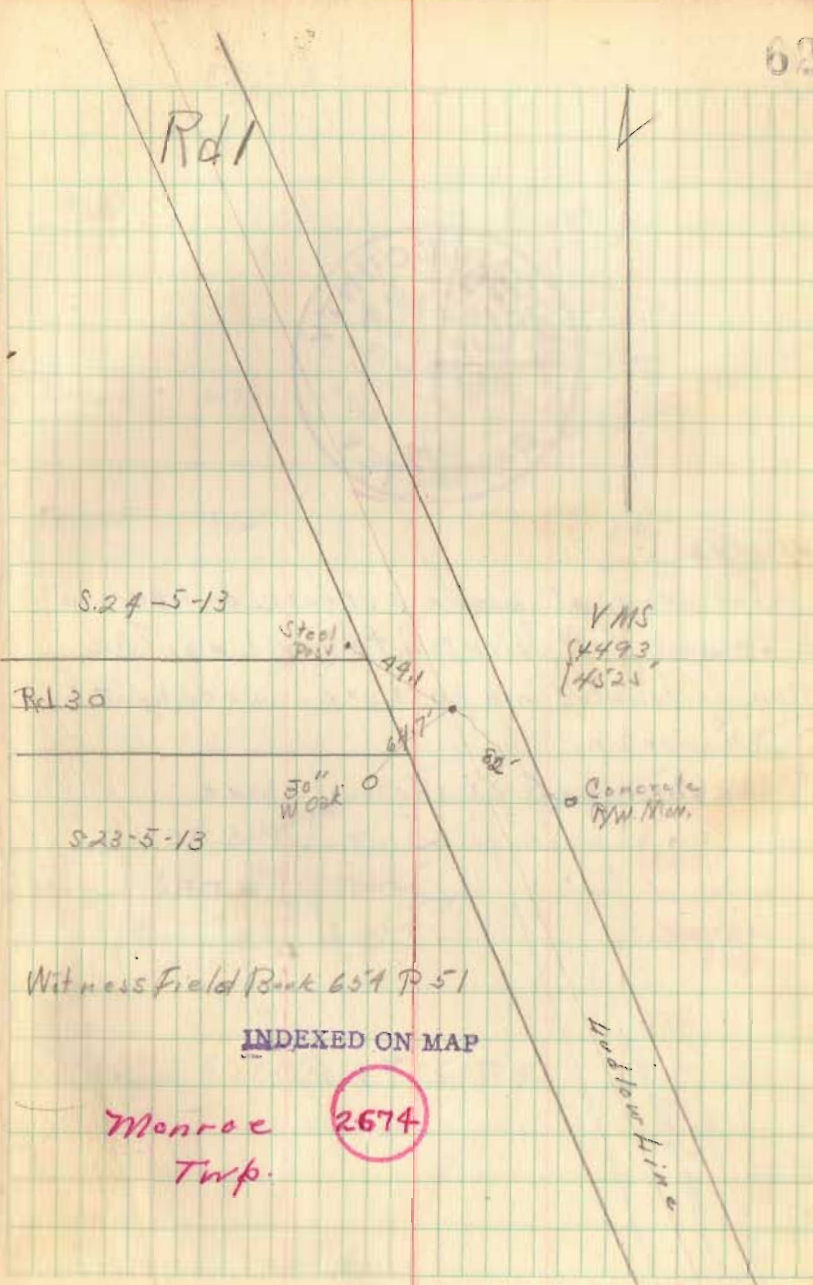 Rd 1
S. 24-5-13
Steel
Post
44.1
VMS
4493,
4525
Rd 30
64.7'
52'
30"
W Oak
Concrete
R/W. Mon.
S-23-5-13
Witness Field Book 654 P 51
INDEXED ON MAP
Ludlow Line
Monroe
Twp.
2674